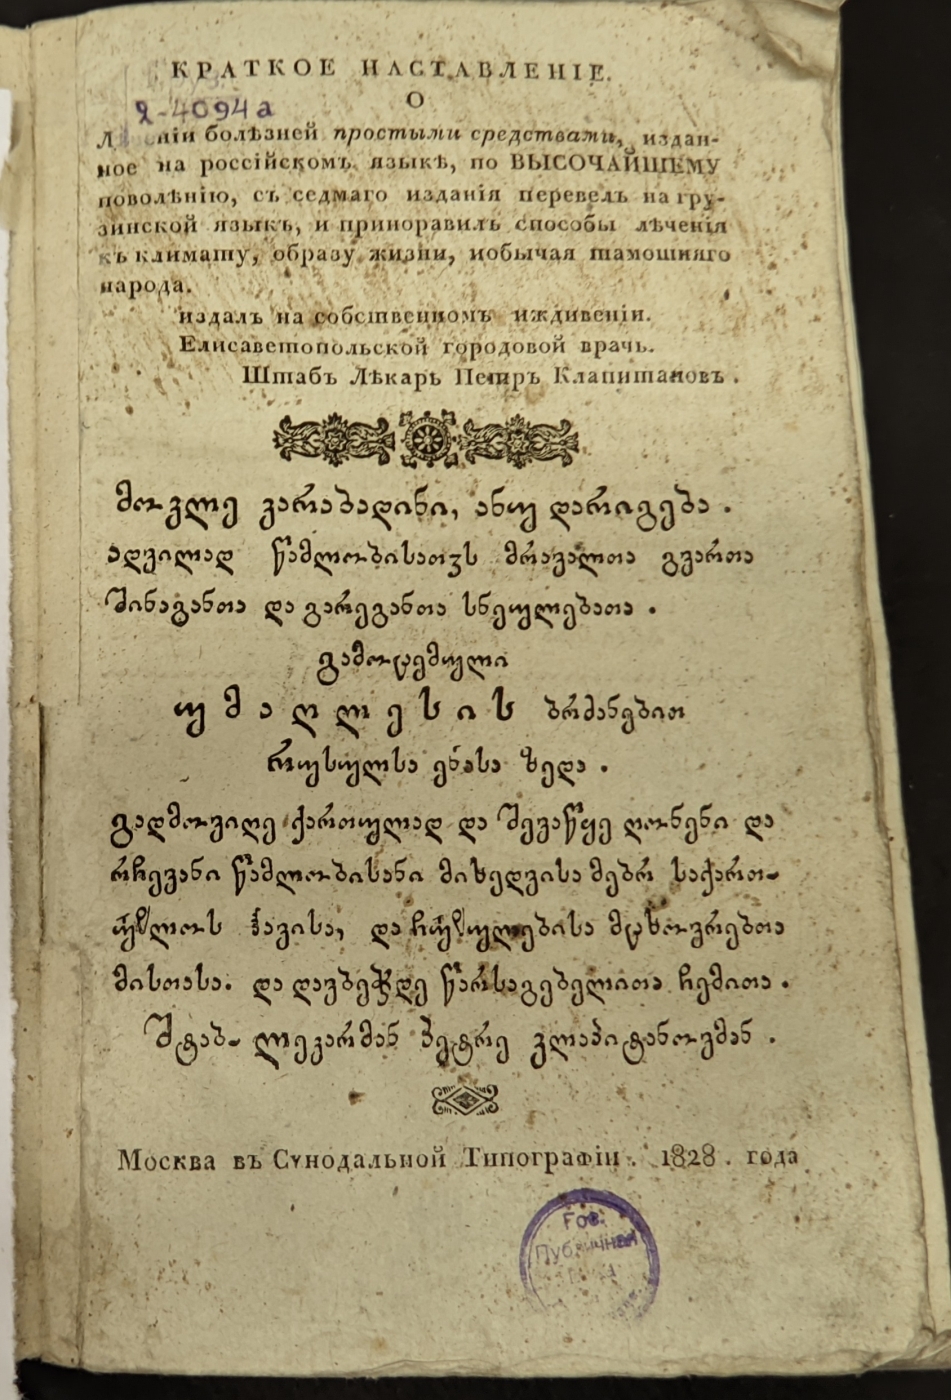 КРАТКОЕ НАСТАВЛЕНІЕ.
О
2-4094а
болѣзней простыми средствами, издан-
ное на россійскомъ языкѣ, по ВЫСОЧАЙШЕМУ
поволѣнію, съ седмаго изданія перевелъ на гру-
зинской языкъ, и приноравилъ способы лѣченія
къ климату, образу жизни, иобычая тамошняго
народа.
издалъ на собственномъ иждивеніи.
Елисаветопольской городовой врачь.
Штабъ Лѣкарь Петръ Клапитановъ.
მოკლე კარაბადინი, ანუ დარიგება.
ადვილად წამლობისათჳს მრავალთა გვართა
შინაგანთა და გარეგანთა სნეულებათა.
გამოცემული
უმაღლესის ბრძანებით
რუსულსა ენასა ზედა.
გადმოვიღე ქართულად და შევაწყე ღონენი და
რჩევანი წამლობისანი მიხედვისამებრ საქართ-
ჰავისა, და მცხოვრებთა
მისთასა. და დავბეჭდე წარსაგებელითა ჩემითა.
შტაბ-ლეკარმან პეტრე კლაპიტანოვმან.
Москва въ Сѵнодальной Типографіи. 1828. года
Гос.
Публичная